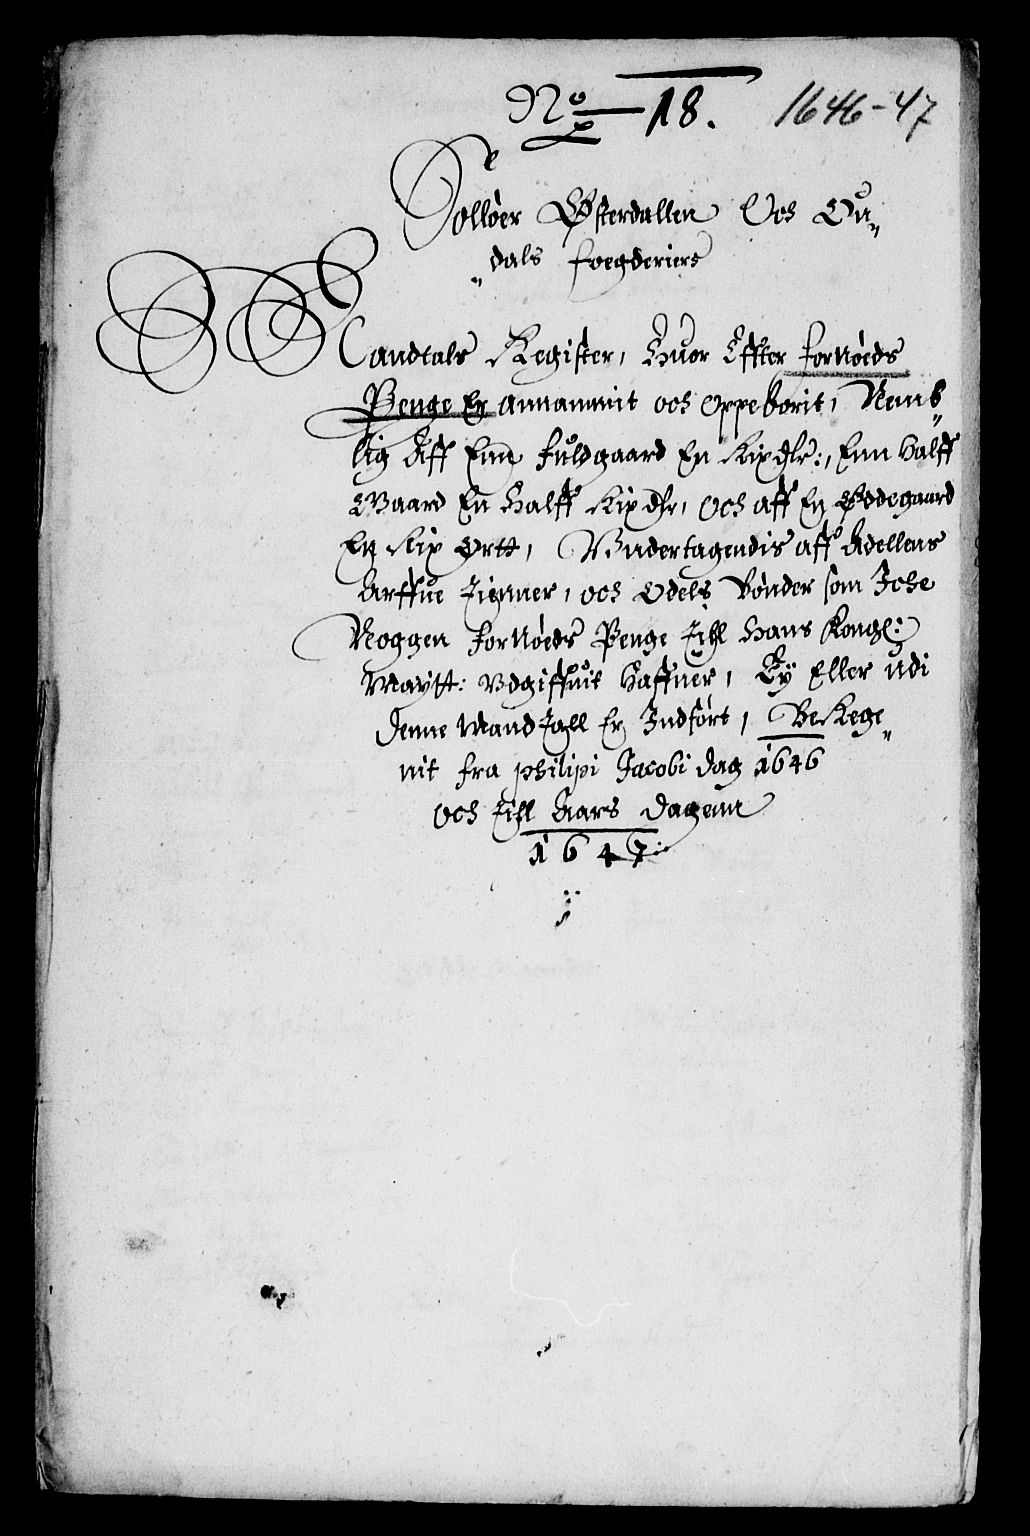 No 18. 1646-47
Solløer Østerdallen Och Ou„
„dals foegderiers
Mandtals Register, Huor Effter fornøeds
Penge Er annammit och oppeborit, Nemb„
lig Aff Enn fuldgaard En Rix dlr:, Enn Halff
Gaard En Halff Rix dlr, Och aff En Ødegaard
En Rix Ortt, Vndertagendis aff Adellens
Arffue Tienner, och Odels Bønder som Iche
Noggen fornøeds Penge Till Hans Kongl:
Maytt: Vdgiffuit Haffuer, Ey Eller udi
denne Mand Tall Er Indført, Berege„
nit fra Philipi Jacobi dag 1646
Och Till Aars dagenn
1647: